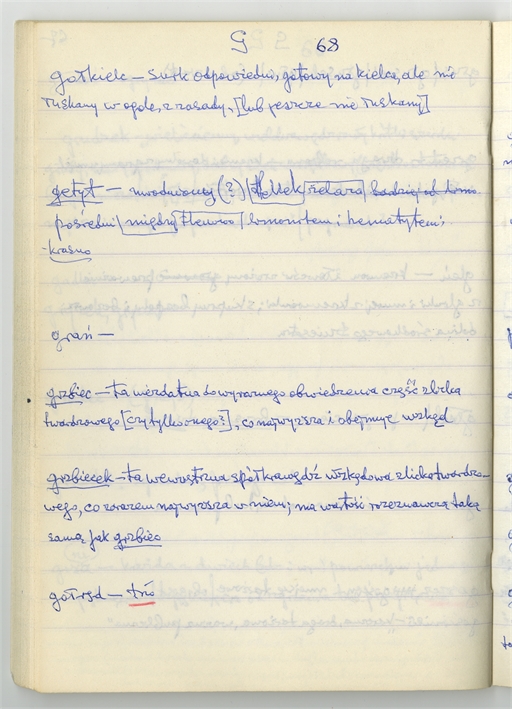 G 68
gotkielc — surk odpowiedni, gotowy na kielca, ale nie
ruskany w ogóle, z zasady, [lub jeszcze nie ruskany]
getyt — (?) tlenek żelaza
pośredni między limonitem i hematytem;
krasno
grań —
grzbiec — ta niezdatna do wyraznego obwiedzenia część zlicka
twardzowego [czy tylko onego?], co najwyzsza i obejmuje wszkąd
grzbiecek — ta wewnstrzna spółkrawędź wszkądowa zlicka twardzo-
wego, co zarazem najwyzsza w niem; ma wartość rozeznawczą taką
samą jak grzbiec
gołrąd — trio